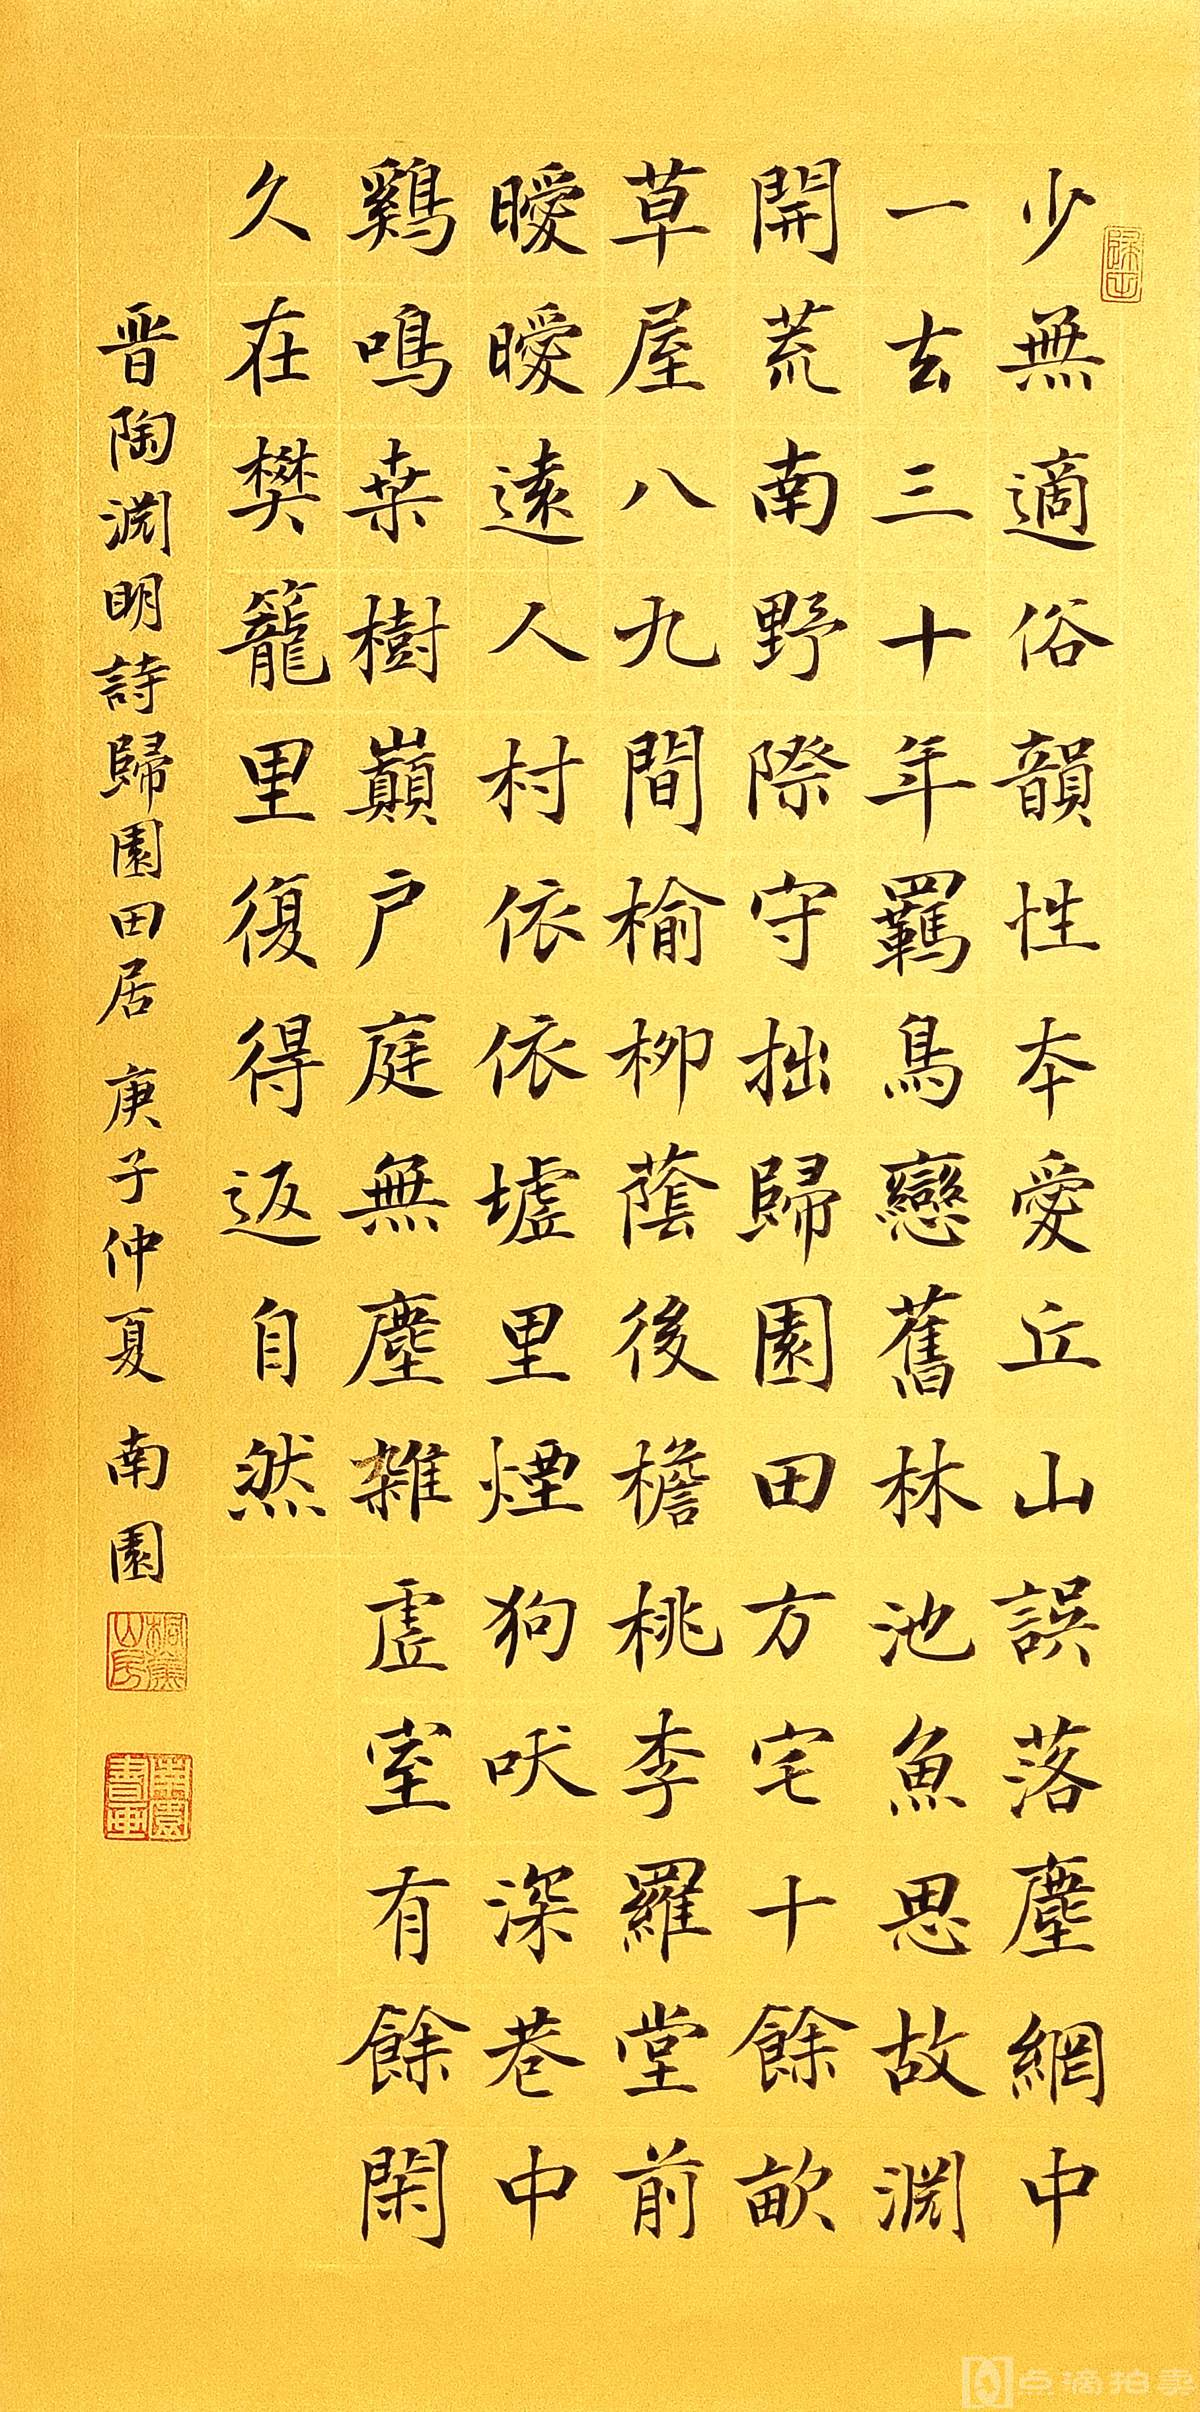 少無適俗韻性本愛丘山誤落塵網中
一去三十年羈鳥戀舊林池魚思故淵
開荒南野際守拙歸園田方宅十餘畝
草屋八九間榆柳蔭後檐桃李羅堂前
曖曖遠人村依依墟里煙狗吠深巷中
鷄鳴桑樹巔户庭無塵雜虛室有餘閑
久在樊籠里復得返自然
晋陶淵明詩歸園田居 庚子仲夏 南園
点滴拍卖